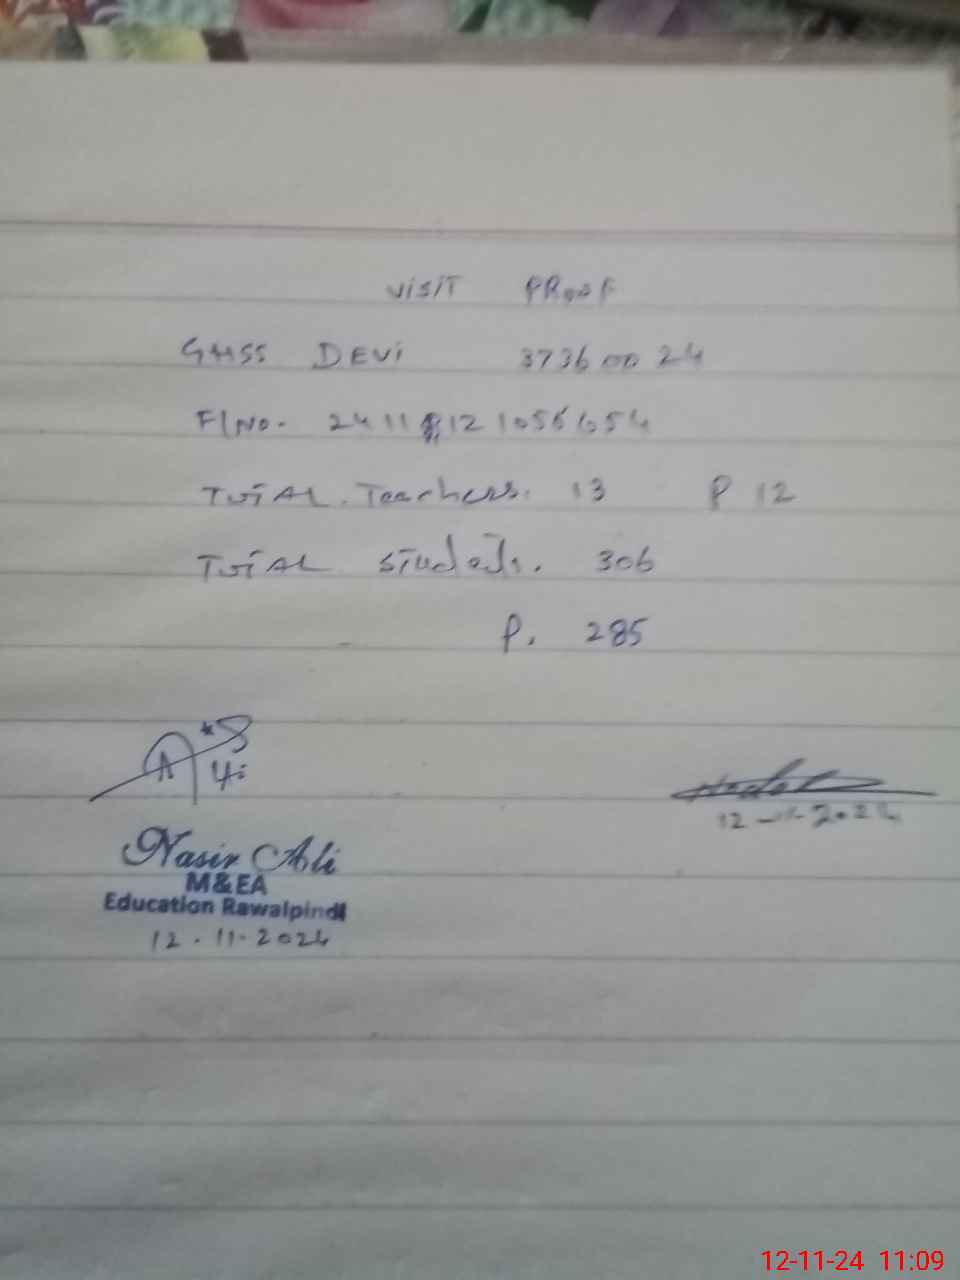 VISIT PROOF
GHSS DEVI 37360024
F/No. 2411 12 1056654
TOTAL. Teachers. 13 P 12
TOTAL students. 306
P. 285
Nasir Ali
M&EA
Education Rawalpindi
12-11-2024
12-11-2024
12-11-24 11:09